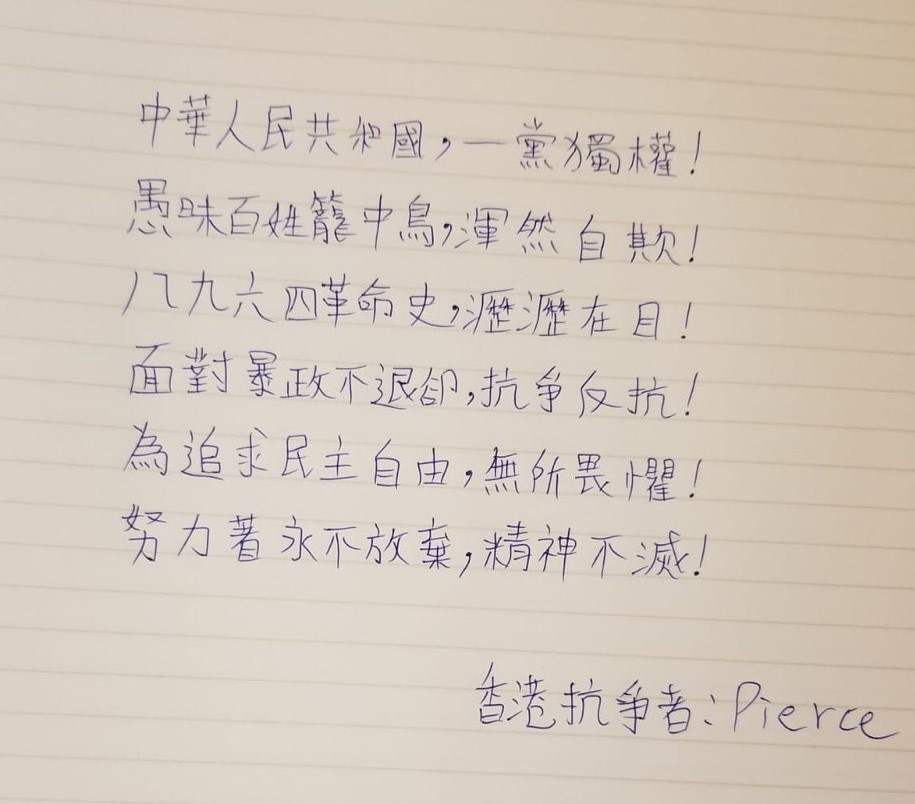 中華人民共和國，一黨獨權！
愚昧百姓籠中鳥，渾然自欺！
八九六四革命史，瀝瀝在目！
面對暴政不退卻，抗爭反抗！
為追求民主自由，無所畏懼！
努力著永不放棄，精神不滅！
香港抗爭者：Pierce